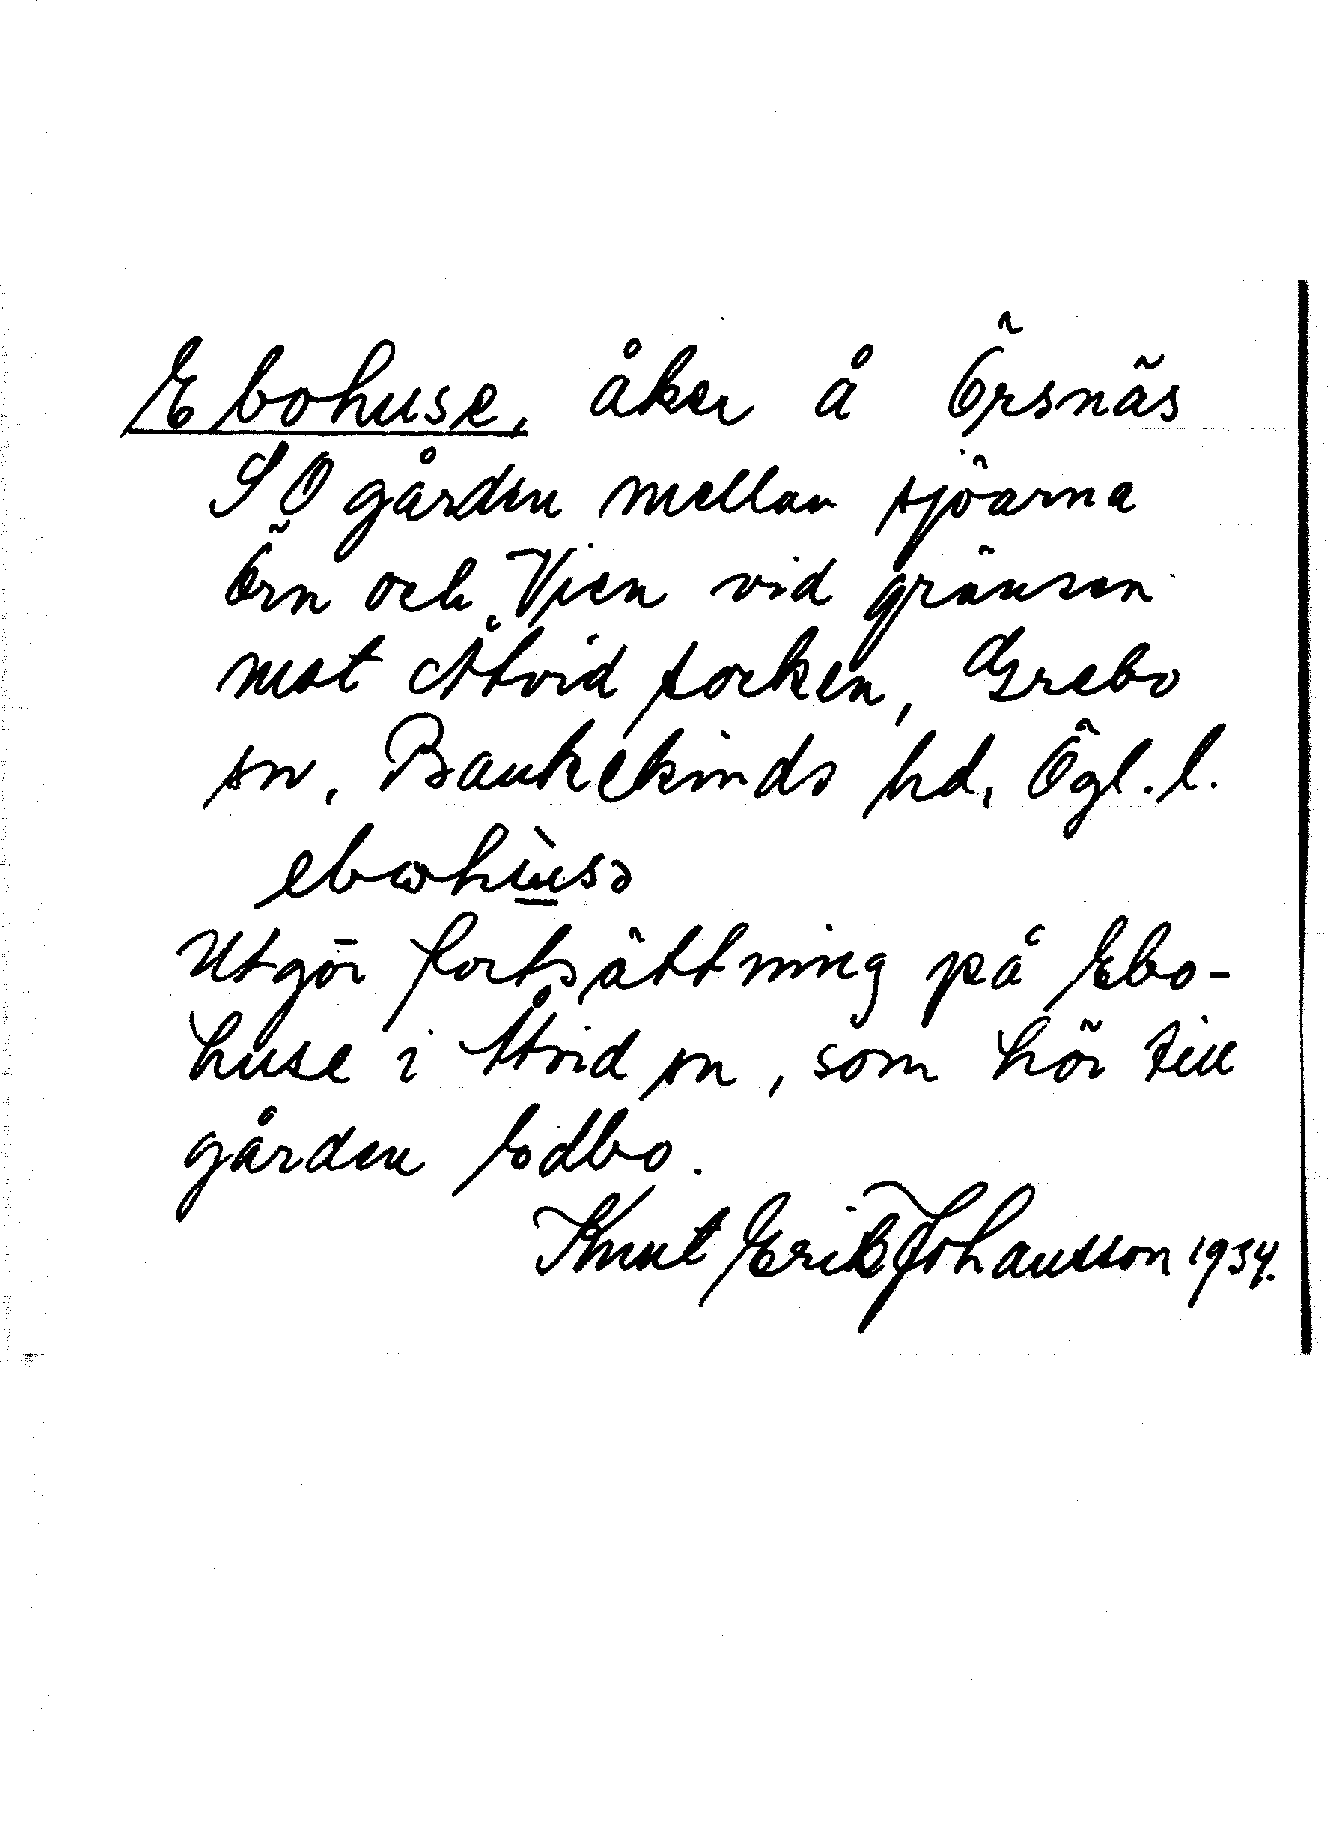 Ebohuse, åker å Örsnäs
SO gården mellan sjöarna
Örn och Vien vid gränsen
mot Åtvid socken, Grebo
sn, Bankekinds hd, Ögl. l.
Utgör fortsättning på Ebo-
huse i Åtvid sn, som hör till
gården Edbo.
Knut Erik Johansson 1934.